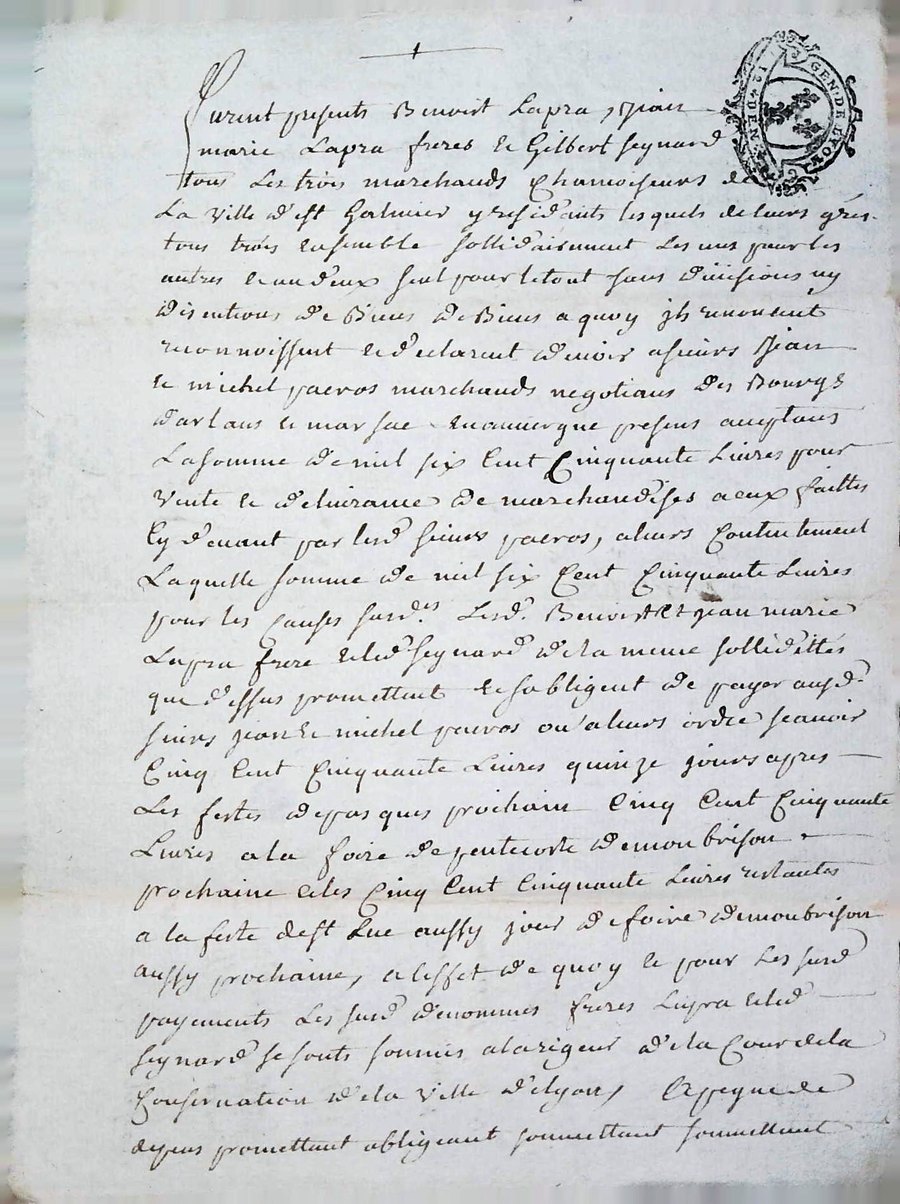 GEN. DE LYON
12 DEN
Furent presents Benoist Lapra, Jean
marie Lapra freres et Gilbert seynard
tous Les trois marchands Chamoiseurs de
La ville de st Galmier y residants lesquels de leurs grés
tous trois ensemble sollidairement Les uns pour les
autres et un d'eux seul pour le tout sans divisions ny
discutions de Biens de Biens a quoy ils renoncent
reconnoissent et declarent devoir a sieurs Jean
et michel pacros marchands negotians des Bourgs
d'arlanc et marsac en auvergne presens acceptans
La somme de mil six Cent Cinquante Livres pour
vente et delivrance de marchandises a eux faittes
Cy devant par lesd sieurs pacros, a leurs Contentement
Laquelle somme de mil six Cent Cinquante Livres
pour les Causes susd.es Lesd. Benoist et jean marie
Lapra frere et led seynard de la meme sollidittés
que dessus promettent et sobligent de payer ausd.
sieurs jean et michel pacros ou a leurs ordre scavoir
Cinq Cent Cinquante Livres quinze jours apres
Les festes de pasques prochain Cinq Cent Cinquante
Livres a la foire de pentecoste de monbrison
prochaine et les Cinq Cent Cinquante Livres restantes
a la feste de st Luc aussy jour de foire de monbrison
aussy prochaine, a leffet de quoy et pour Les susd
payements Les susd denommes freres Lapra et led
seynard se sonts soumis a la rigeur de la Cour de la
Conservation de la ville de lyon, a peyne de
depens promettant obligeant soumettant soumettant